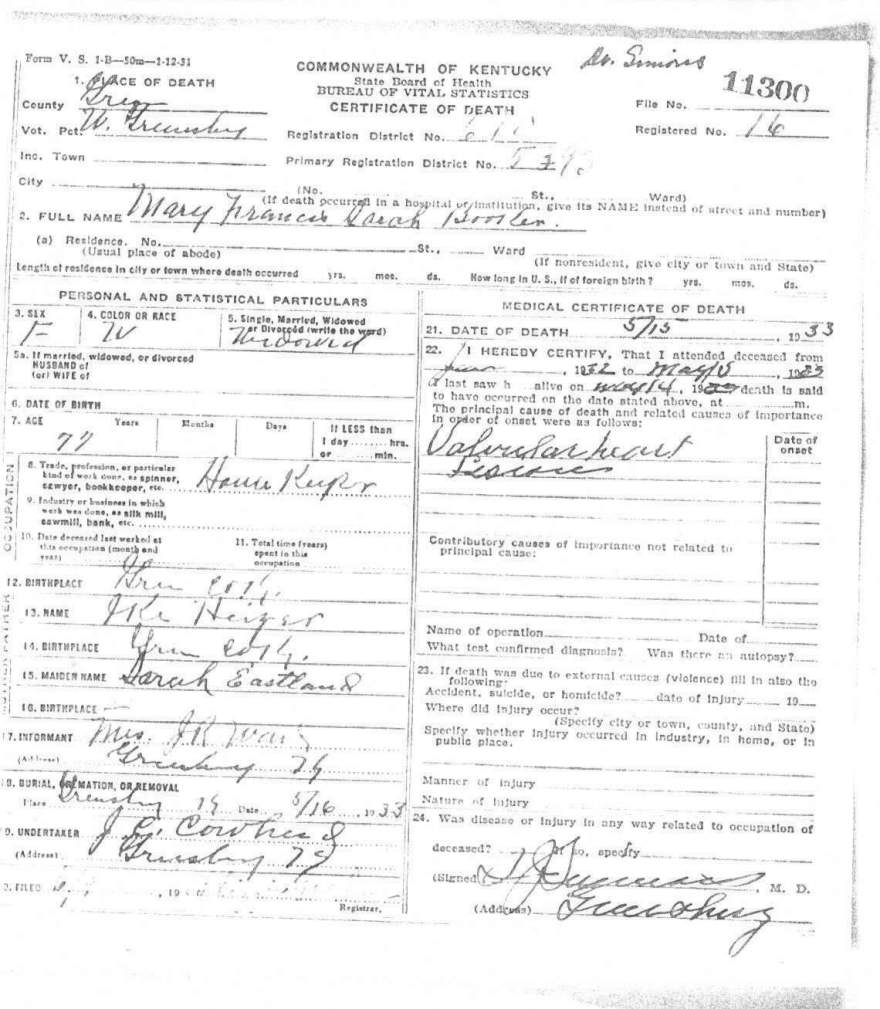 Form V. S. 1-B—50m—1-12-31
COMMONWEALTH OF KENTUCKY
State Board of Health
BUREAU OF VITAL STATISTICS
CERTIFICATE OF DEATH
Dr. Simons
11300
File No.
Registered No. 16
1. PLACE OF DEATH
County Green
Vot. Pct. W. Greensburg
Inc. Town
City
Registration District No.
Primary Registration District No.
(No. St., Ward)
(If death occurred in a hospital or institution, give its NAME instead of street and number)
2. FULL NAME Mary Francis Sarah
(a) Residence. No. St., Ward
(Usual place of abode) (If nonresident, give city or town and State)
Length of residence in city or town where death occurred yrs. mos. ds. How long in U. S., if of foreign birth? yrs. mos. ds.
PERSONAL AND STATISTICAL PARTICULARS
3. SEX F
4. COLOR OR RACE W
5. Single, Married, Widowed or Divorced (write the word) Widowed
5a. If married, widowed, or divorced
HUSBAND of
(or) WIFE of
6. DATE OF BIRTH
7. AGE 77 Years Months Days If LESS than
1 day hrs.
or min.
OCCUPATION
8. Trade, profession, or particular
kind of work done, as spinner,
sawyer, bookkeeper, etc. House Keeper
9. Industry or business in which
work was done, as silk mill,
sawmill, bank, etc.
10. Date deceased last worked at
this occupation (month and
year)
11. Total time (years)
spent in this
occupation
12. BIRTHPLACE Green Co Ky.
FATHER
13. NAME Ike Heizer
14. BIRTHPLACE Green Co Ky.
15. MAIDEN NAME Sarah Eastland
16. BIRTHPLACE
17. INFORMANT Mrs. J R
(Address) Greensburg Ky
18. BURIAL, CREMATION, OR REMOVAL
Place Greensburg Ky Date 5/16, 1933
19. UNDERTAKER J. E. Cowherd
(Address) Greensburg Ky
20. FILED 19
Registrar.
MEDICAL CERTIFICATE OF DEATH
21. DATE OF DEATH 5/15, 1933
22. I HEREBY CERTIFY, That I attended deceased from
, 1932 to May 15, 1933
I last saw h alive on May 14, 19 death is said
to have occurred on the date stated above, at m.
The principal cause of death and related causes of importance
in order of onset were as follows:
Date of onset
Valvular heart
Lesions
Contributory causes of importance not related to
principal cause:
Name of operation Date of
What test confirmed diagnosis? Was there an autopsy?
23. If death was due to external causes (violence) fill in also the
following:
Accident, suicide, or homicide? date of injury 19
Where did injury occur?
(Specify city or town, county, and State)
Specify whether injury occurred in industry, in home, or in
public place.
Manner of injury
Nature of injury
24. Was disease or injury in any way related to occupation of
deceased? If so, specify
(Signed) , M. D.
(Address) Greensburg